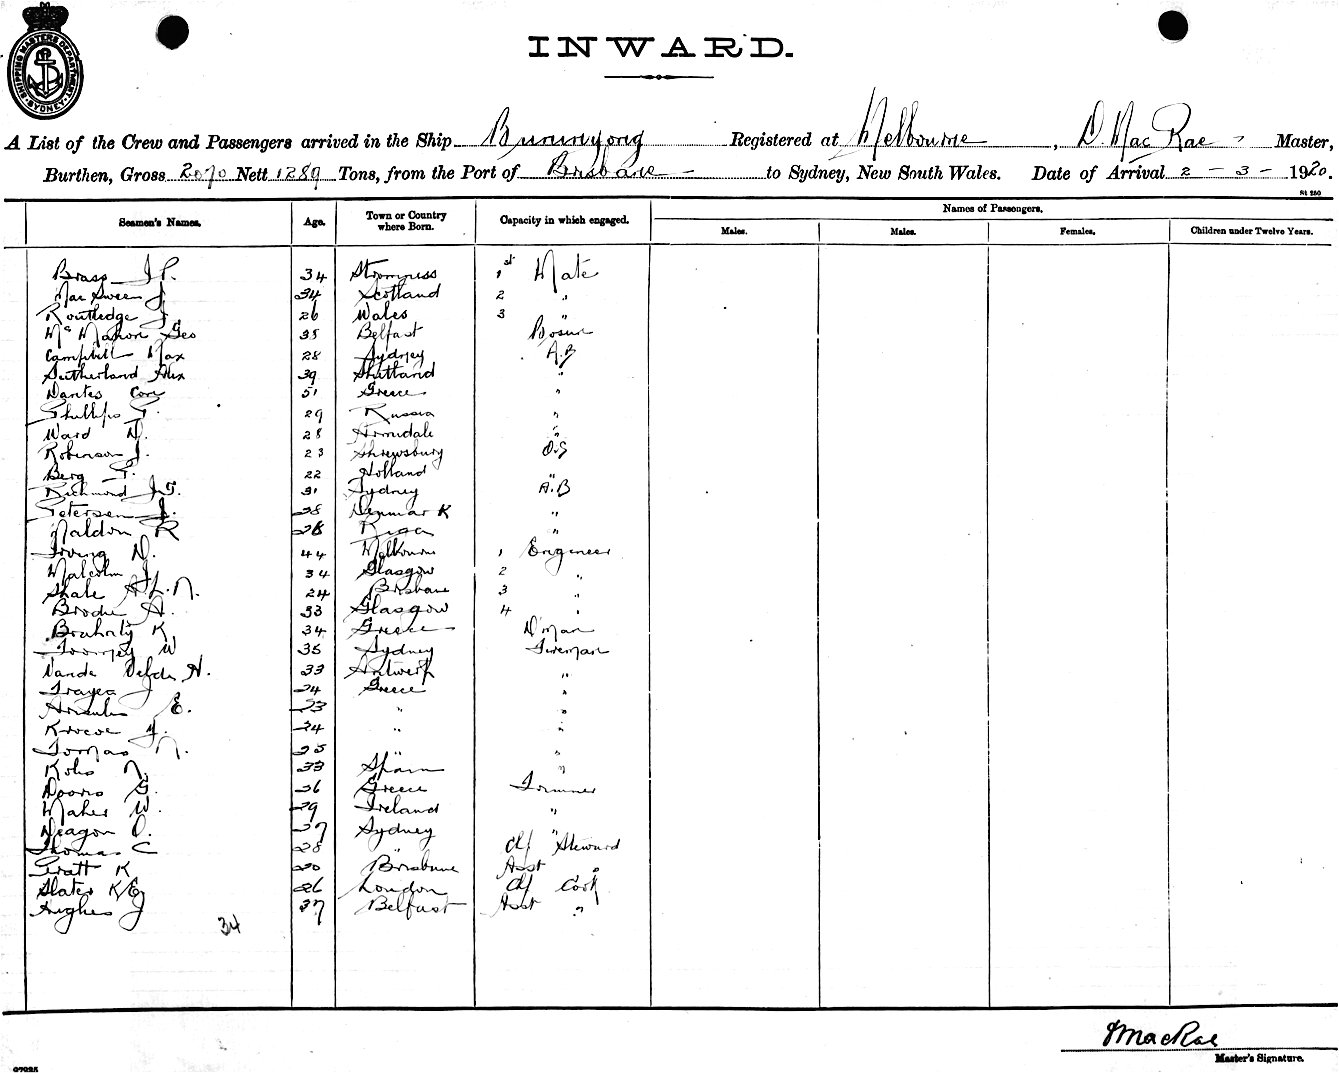 SHIPPING MASTERS DEPARTMENT SYDNEY
INWARD.
A List of the Crew and Passengers arrived in the Ship Buninyong Registered at Melbourne, D. MacRae Master,
Burthen, Gross 2070 Nett 1289 Tons, from the Port of Brisbane to Sydney, New South Wales. Date of Arrival 2 - 3 - 1920.
St 250
Seamen's Names. Age. Town or Country where Born. Capacity in which engaged. Names of Passengers.
Males. Males. Females. Children under Twelve Years.
Brass J P. 34 Stromness 1st Mate
Mac Swee J 34 Scotland 2 "
Routledge J 26 Wales 3 "
Mc Mahon Geo 35 Belfast Bosun
Campbell Max 28 Sydney A.B
Sutherland Alex 39 Shetland "
Dantes Con 51 Greece "
Phillips P. 29 Russia "
Ward D. 28 Armidale "
Robinson J. 23 Shrewsbury O.S
Berg 22 Holland "
Richmond J G. 31 Sydney A.B
Petersen J. 28 Denmark "
Naldon R 28 Riga "
Irving D. 44 Melbourne 1 Engineer
Malcolm J. 34 Glasgow 2 "
Shale A L. N. 24 Brisbane 3 "
Brodie A. 33 Glasgow 4 "
K 34 Greece D'man
Toomey W 35 Sydney Fireman
Vande Velde H. 33 Antwerp "
J 24 Greece "
E. 23 " "
24 " "
Tomas N. 25 " "
N. 33 Spain "
G. 26 Greece Trimmer
Maher W. 29 Ireland "
Deagon O. 27 Sydney "
Thomas C 28 " Chf Steward
Gratt K 20 Brisbane Asst "
Slater K/E 26 London Chf Cook
Hughes J 37 Belfast Asst "
34
D MacRae
Master's Signature.